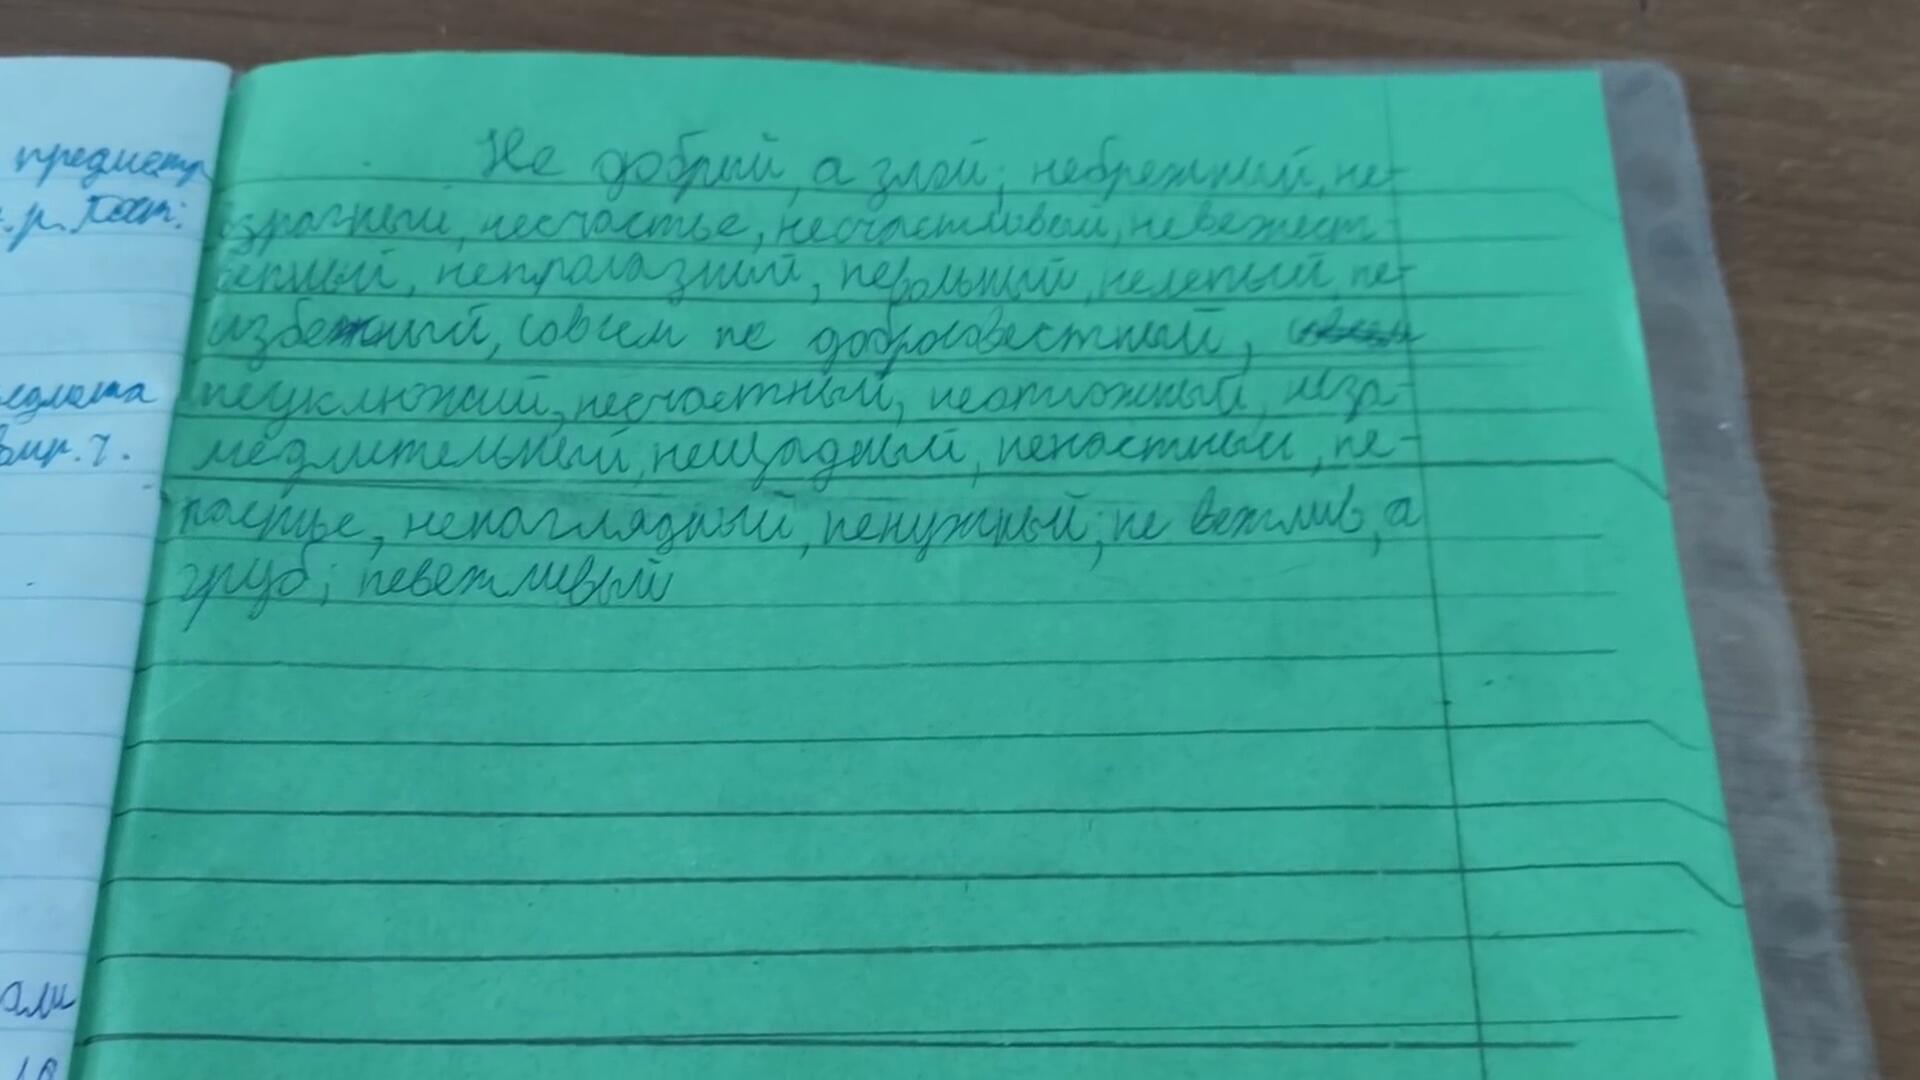 предметр
.р. Паст:
едмета
вир. ч.
али
Не добрый, а злой; небрежный, не-
взрачный, несчастье, несчастливый, невежест-
венный, непролазный, невольный, нелепый, не-
избежный, совсем не добросовестный,
неуклюжий, несчастный, неотложный, неза-
медлительный, нещадный, ненастный, не-
настье, ненаглядный, ненужный; не вежлив, а
груб; невежливый